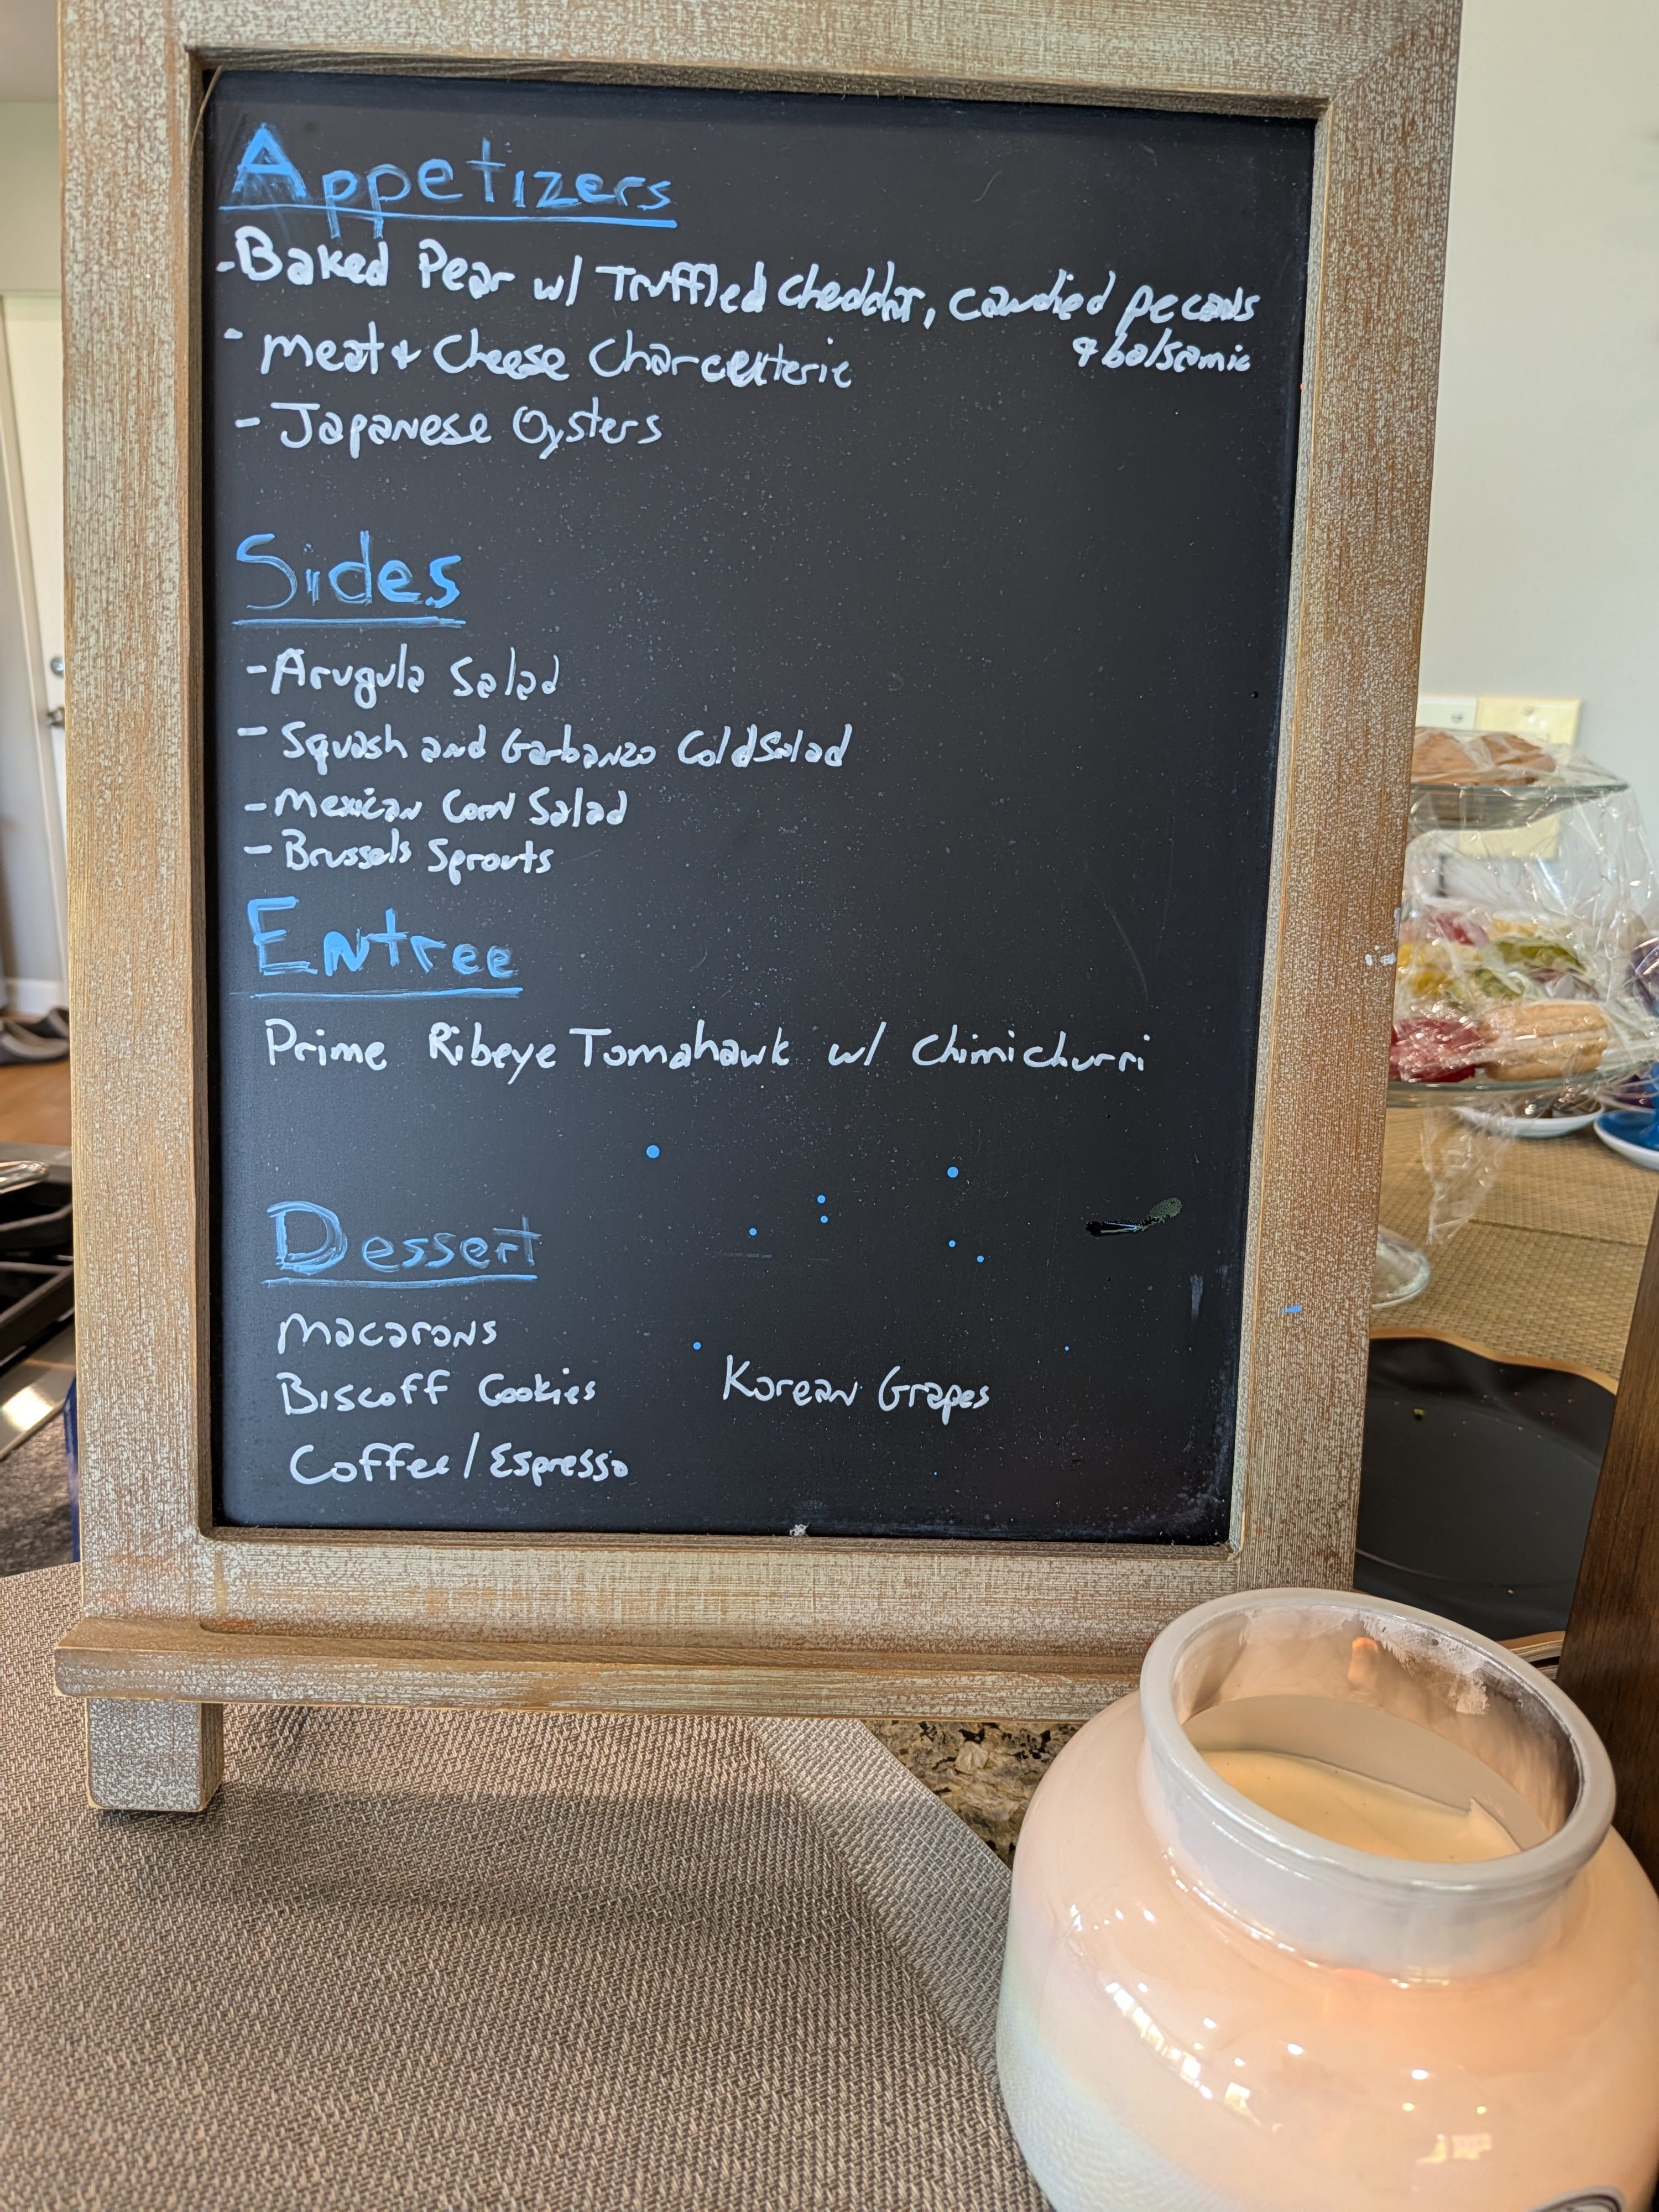 Appetizers
- Baked Pear w/ Truffled Cheddar, candied pecans
& balsamic
- Meat & Cheese Charceuterie
- Japanese Oysters
Sides
- Arugula Salad
- Squash and Garbanzo Cold Salad
- Mexican Corn Salad
- Brussels Sprouts
Entree
Prime Ribeye Tomahawk w/ Chimichurri
Dessert
Macarons
Biscoff Cookies
Korean Grapes
Coffee / Espresso